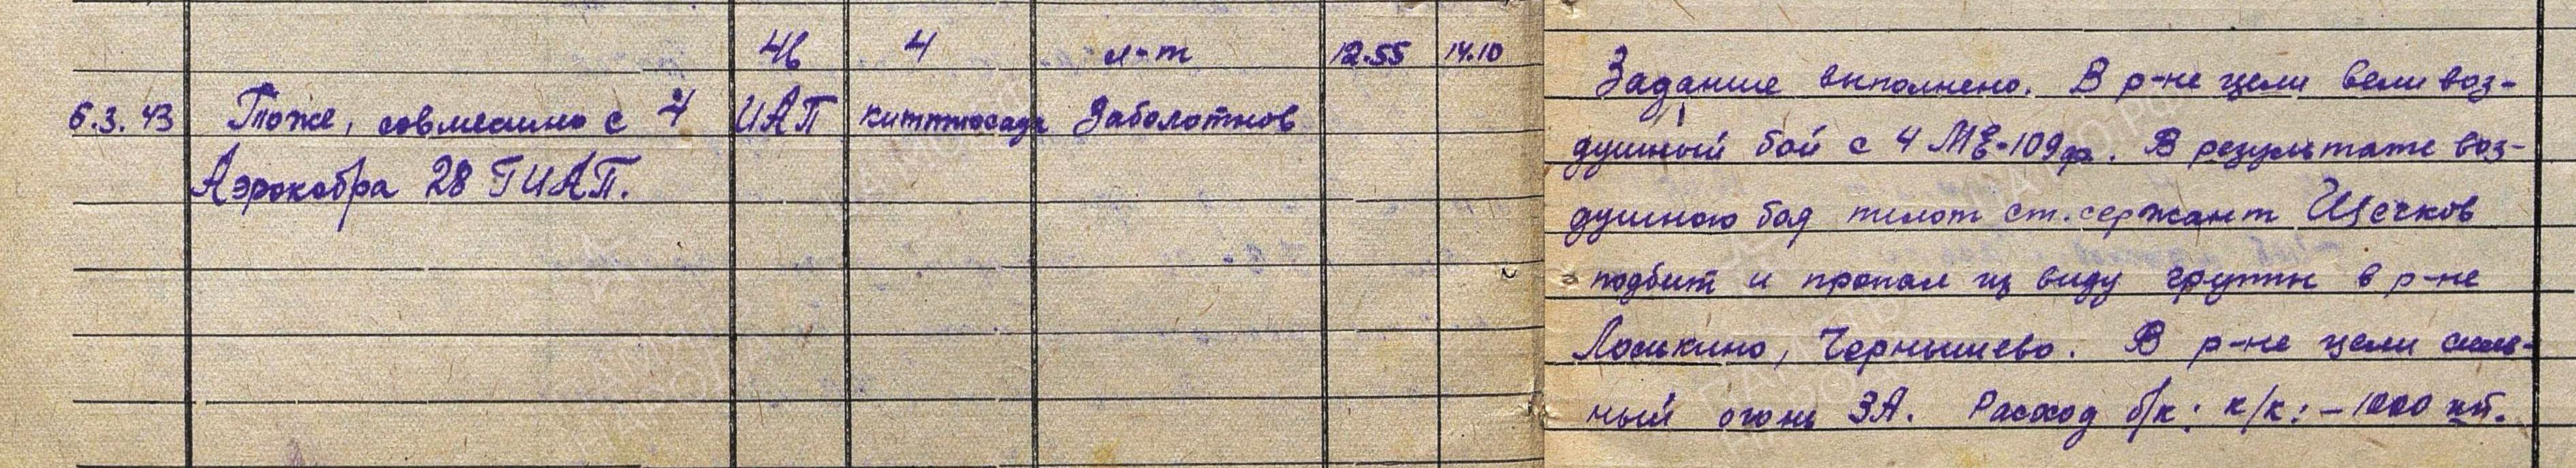 46 4 л-т 12.55 14.10
6.3.43 Тоже, совместно с 4 ИАП киттихаук Заболотнов
Аэрокобра 28 ГИАП.
Задание выполнено. В р-не цели вели воз-
душный бой с 4 МЕ-109ф. В результате воз-
душного боя пилот ст. сержант Щечков
подбит и пропал из виду группы в р-не
Лоськино, Чернышево. В р-не цели силь-
ный огонь ЗА. Расход б/к: к/к: -1000 шт.